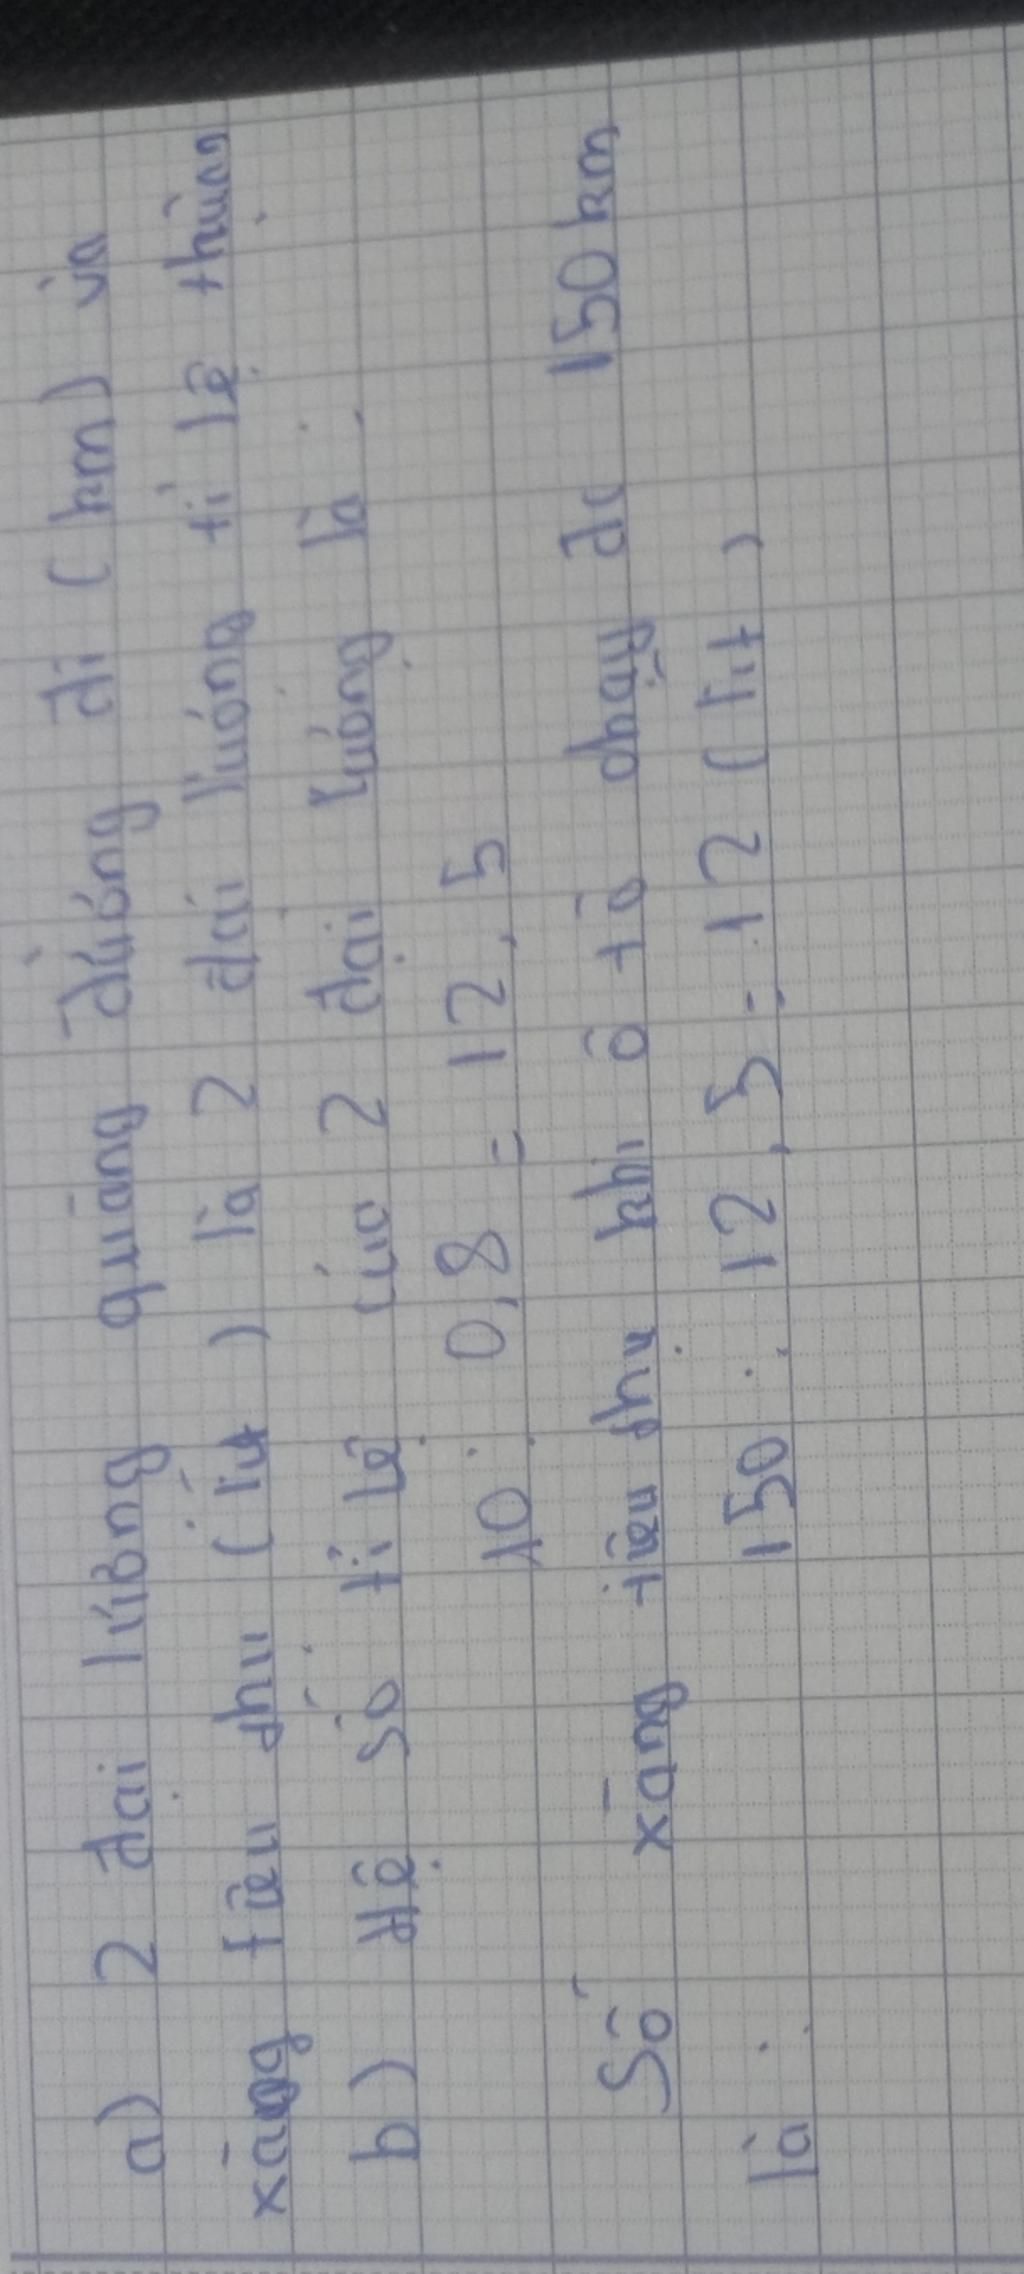 a) 2 đại lượng quãng đường đi (km) và
xăng tiêu thụ (lít) là 2 đại lượng tỉ lệ thuận
b) Hệ số tỉ lệ của 2 đại lượng là :
10 : 0,8 = 12,5
Số xăng tiêu thụ khi ô tô chạy đc 150 km
là : 150 : 12,5 = 12 (lít)